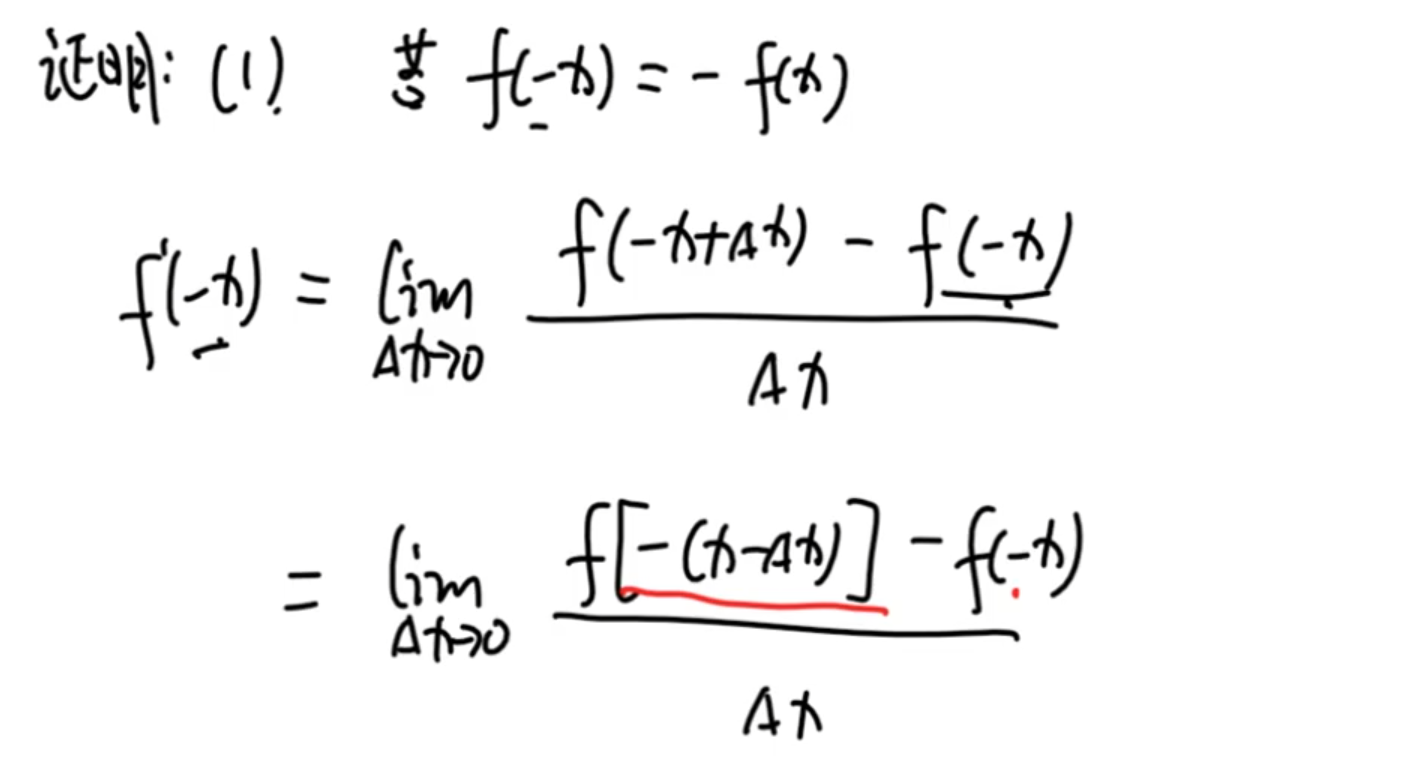 证明: (1) 若 f(-x) = - f(x)
f'(-x) = lim_{Δx→0} \frac{f(-x+Δx) - f(-x)}{Δx}
= lim_{Δx→0} \frac{f[-(x-Δx)] - f(-x)}{Δx}